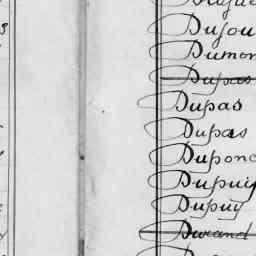 Dujou
Dumon
Dupas
Dupas
Dupas
Dupond
Dupuy
Dupuy
Durand